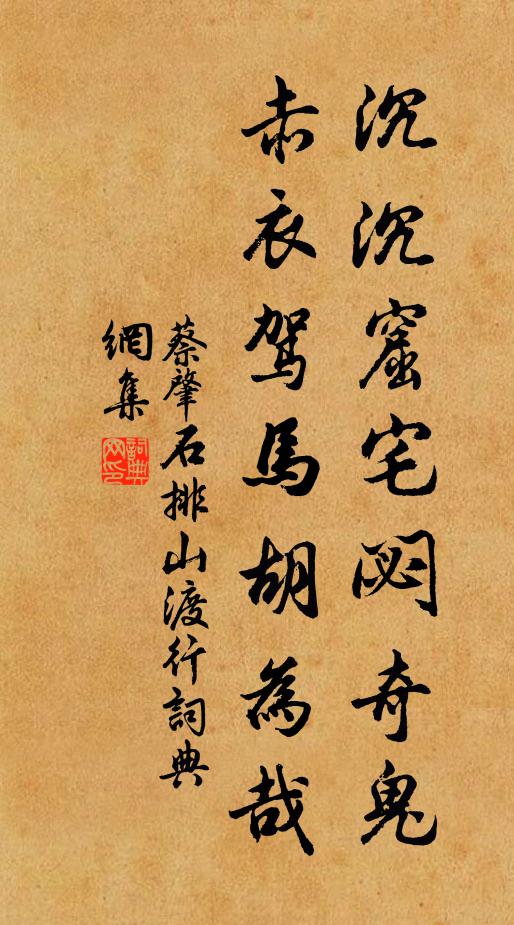 沉沉窟宅閟奇鬼
赤衣駕馬胡為哉
蔡肇石排山渡行詞典
網集
詞典網印